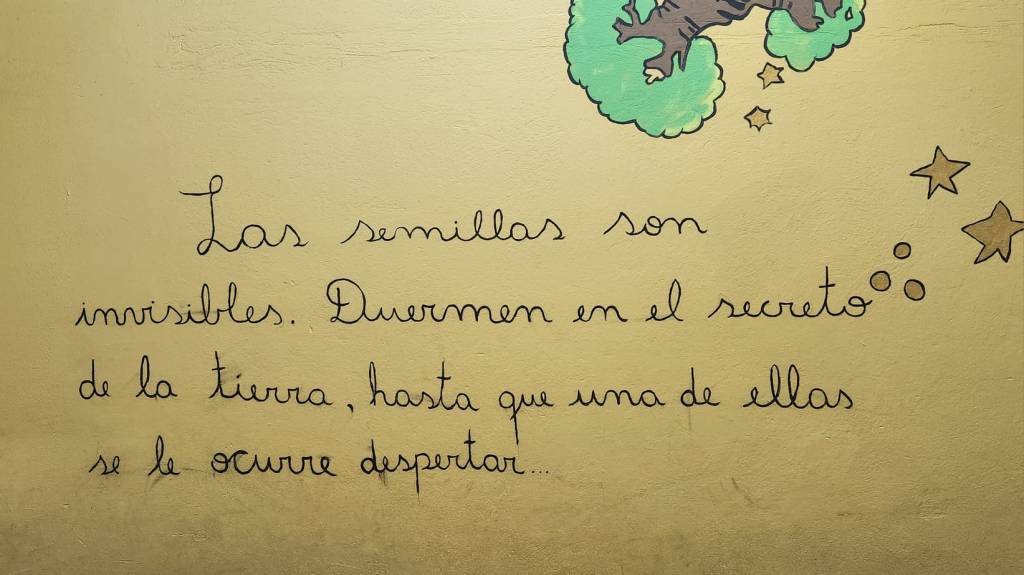 Las semillas son
invisibles. Duermen en el secreto
de la tierra, hasta que una de ellas
se le ocurre despertar...